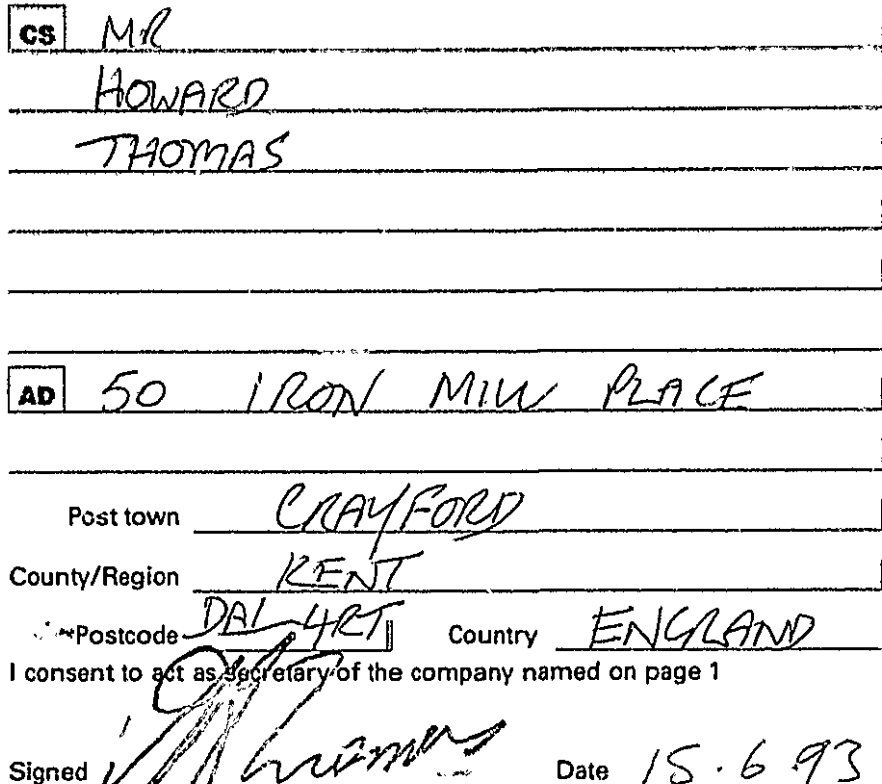 CS MR
HOWARD
THOMAS
AD 50 IRON MILL PLACE
Post town CRAYFORD
County/Region KENT
Postcode DA1 4RT Country ENGLAND
I consent to act as secretary of the company named on page 1
Signed Date 15.6.93